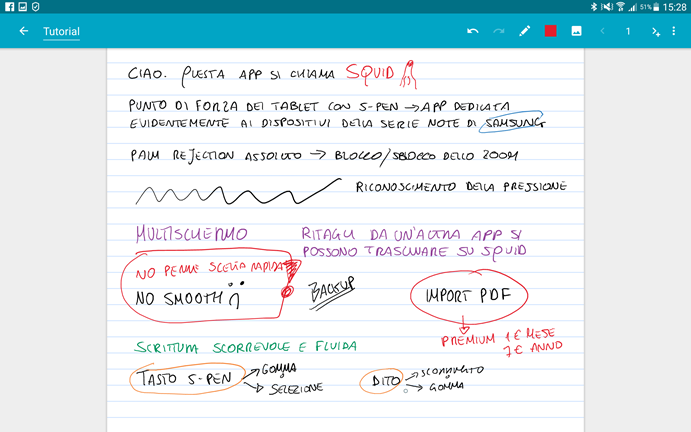 51% 15:28
Tutorial
1
CIAO. QUESTA APP SI CHIAMA SQUID
PUNTO DI FORZA DEI TABLET CON S-PEN → APP DEDICATA
EVIDENTEMENTE AI DISPOSITIVI DELLA SERIE NOTE DI SAMSUNG
PALM REJECTION ASSOLUTO → BLOCCO/SBLOCCO DELLO ZOOM
RICONOSCIMENTO DELLA PRESSIONE
MULTISCHERMO
RITAGLI DA UN'ALTRA APP SI
POSSONO TRASCINARE SU SQUID
NO PENNE SCELTA RAPIDA
NO SMOOTH
BACKUP
IMPORT PDF
PREMIUM 1€ MESE
7€ ANNO
SCRITTURA SCORREVOLE E FLUIDA
TASTO S-PEN
GOMMA
o
SELEZIONE
DITO
SCORRIMENTO
o
GOMMA